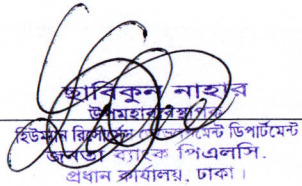 ছাবিকুন নাহার
উপমহাব্যবস্থাপক
হিউম্যান রিসোর্সেস ডেভেলপমেন্ট ডিপার্টমেন্ট
জনতা ব্যাংক পিএলসি.
প্রধান কার্যালয়, ঢাকা।